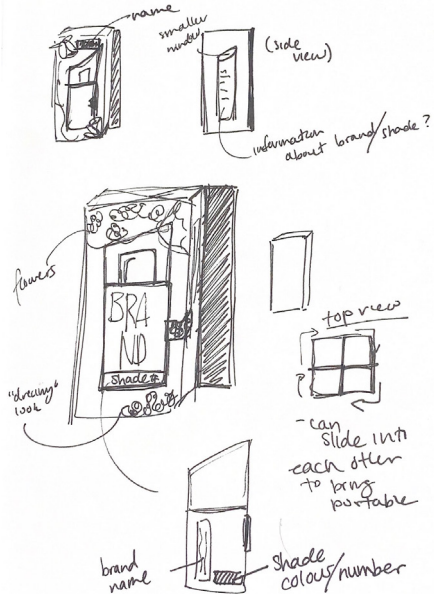 name
smaller
window
(side
view)
information
about brand/shade?
flowers
BRA
ND
shade #
"dreamy"
look
top view
- can
slide into
each other
to bring
portable
brand
name
shade
colour/number